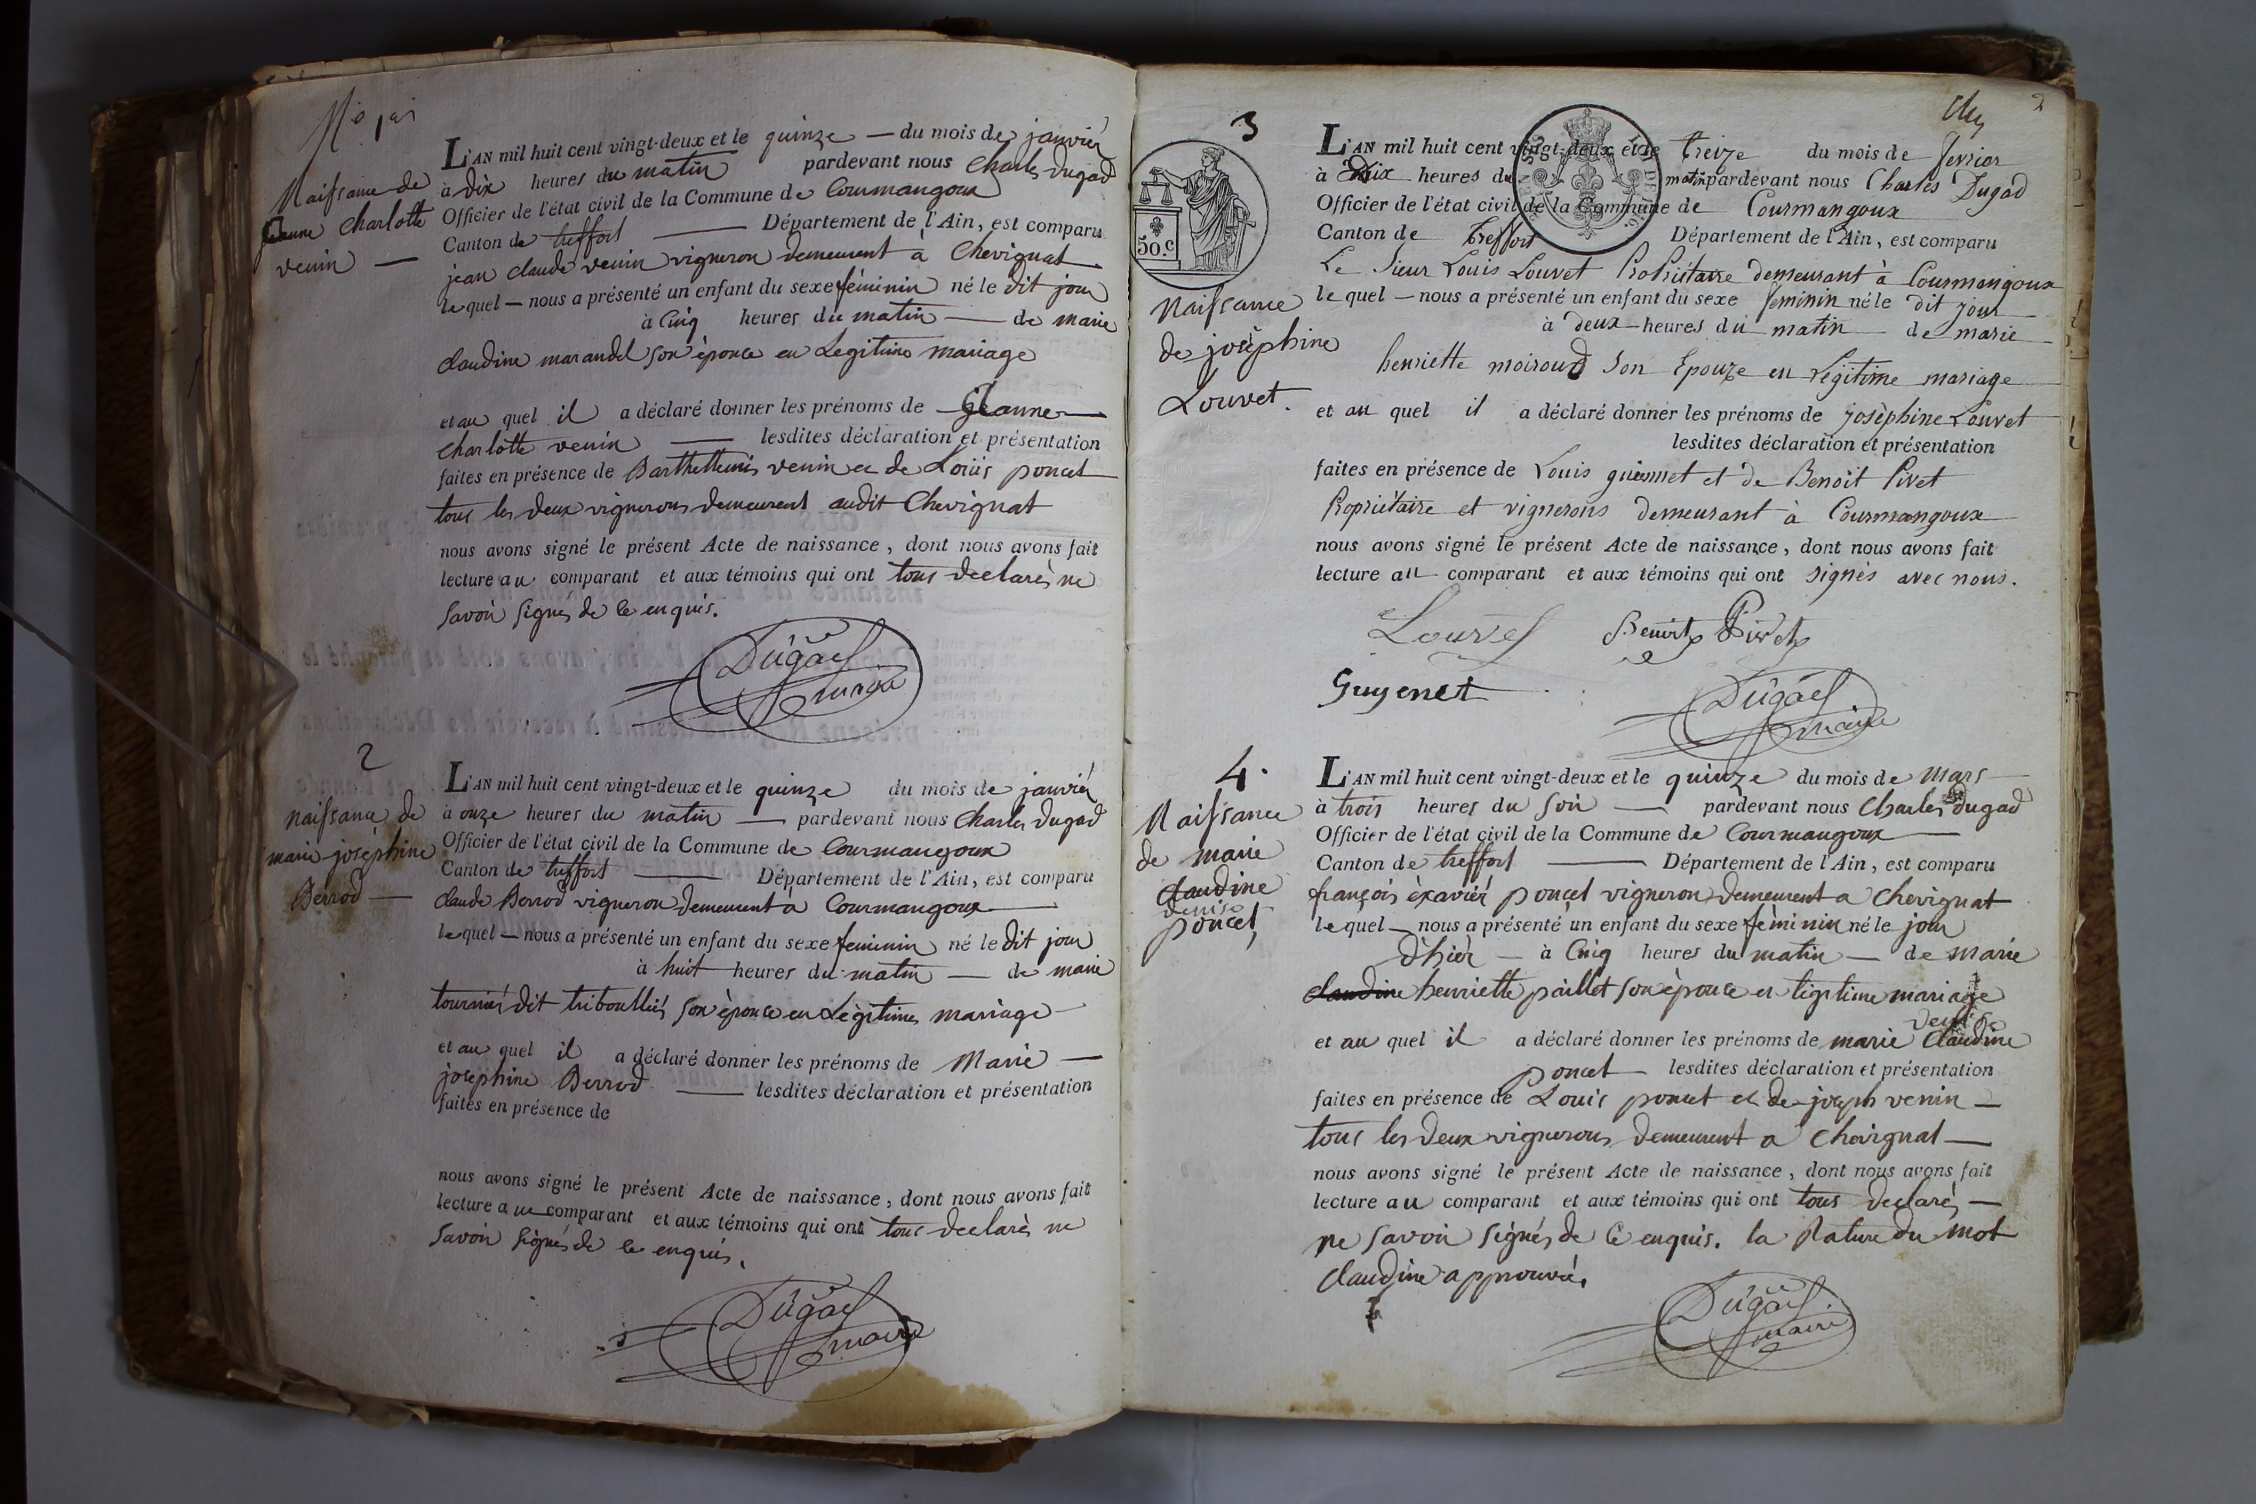 No 1er
Naissance de
Jeanne Charlotte
venin —
L'AN mil huit cent vingt-deux et le quinze — du mois de janvier
à dix heures du matin pardevant nous Charles Dugad
Officier de l'état civil de la Commune de Courmangoux
Canton de treffort — Département de l'Ain, est comparu
jean claude venin vigneron demeurent a Chevignat
le quel — nous a présenté un enfant du sexe féminin né le dit jour
à Cinq heures du matin — de marie
claudine marandel son èpouce en Legitime mariage
et au quel il a déclaré donner les prénoms de Jeanne
charlotte venin — lesdites déclaration et présentation
faites en présence de Barthellemis venin et de Louis poncet
tous les deux vignerons demeurent audit Chevignat
nous avons signé le présent Acte de naissance, dont nous avons fait
lecture au comparant et aux témoins qui ont tous declarès ne
savoir signés de ce enquis.
Dugad
maire
2
naissance de
marie josèphine
Berrod —
L'AN mil huit cent vingt-deux et le quinze du mois de janvier
à onze heures du matin — pardevant nous Charles Dugad
Officier de l'état civil de la Commune de Courmangoux
Canton de treffort — Département de l'Ain, est comparu
claude Berrod vigneron demeurent a Courmangoux
le quel — nous a présenté un enfant du sexe feminin né le dit jour
à huit heures du matin — de marie
tournier dit triboullier son èpouce en Legitime mariage
et au quel il a déclaré donner les prénoms de Marie —
josephine Berrod — lesdites déclaration et présentation
faites en présence de
nous avons signé le présent Acte de naissance, dont nous avons fait
lecture a ue comparant et aux témoins qui ont tous declarès ne
savoir signés de ce enquis.
Dugad
maire
2
3
50.c
Naissance
de josèphine
Louvet.
L'AN mil huit cent vingt-deux et le treize du mois de fevrier
à Dix heures du matin pardevant nous Charles Dugad
Officier de l'état civil de la Commune de Courmangoux
Canton de Treffort Département de l'Ain, est comparu
Le Sieur Louis Louvet Propriétaire demeurant à Courmangoux
le quel — nous a présenté un enfant du sexe feminin né le dit jour
à deux heures du matin de marie
henriette moiroud son Epouze en Légitime mariage
et au quel il a déclaré donner les prénoms de josèphine Louvet
lesdites déclaration et présentation
faites en présence de Louis guiennet et de Benoit Pivet
Propriétaire et vignerons demeurant à Courmangoux
nous avons signé le présent Acte de naissance, dont nous avons fait
lecture au comparant et aux témoins qui ont signés avec nous.
Louvet Benoit Pivet
Guyenet
Dugad
maire
4.
Naissance
de marie
claudine
denise
poncet
L'AN mil huit cent vingt-deux et le quinze du mois de Mars
à trois heures du soir — pardevant nous Charles Dugad
Officier de l'état civil de la Commune de Courmangoux
Canton de treffort — Département de l'Ain, est comparu
françois èxavier poncet vigneron demeurent a Chevignat
le quel — nous a présenté un enfant du sexe fèminin né le jour
d'hièr — à Cinq heures du matin — de marie
claudine henriette paillet son èpouce en ligitime mariage
denise
et au quel il a déclaré donner les prénoms de marie claudine
poncet — lesdites déclaration et présentation
faites en présence de Louis poncet et de joseph venin —
tous les deux vignerons demeurent a Chevignat —
nous avons signé le présent Acte de naissance, dont nous avons fait
lecture au comparant et aux témoins qui ont tous declarès —
ne savoir signés de Ce enquis. la Rature du mot
Claudine approuvée.
Dugad
maire